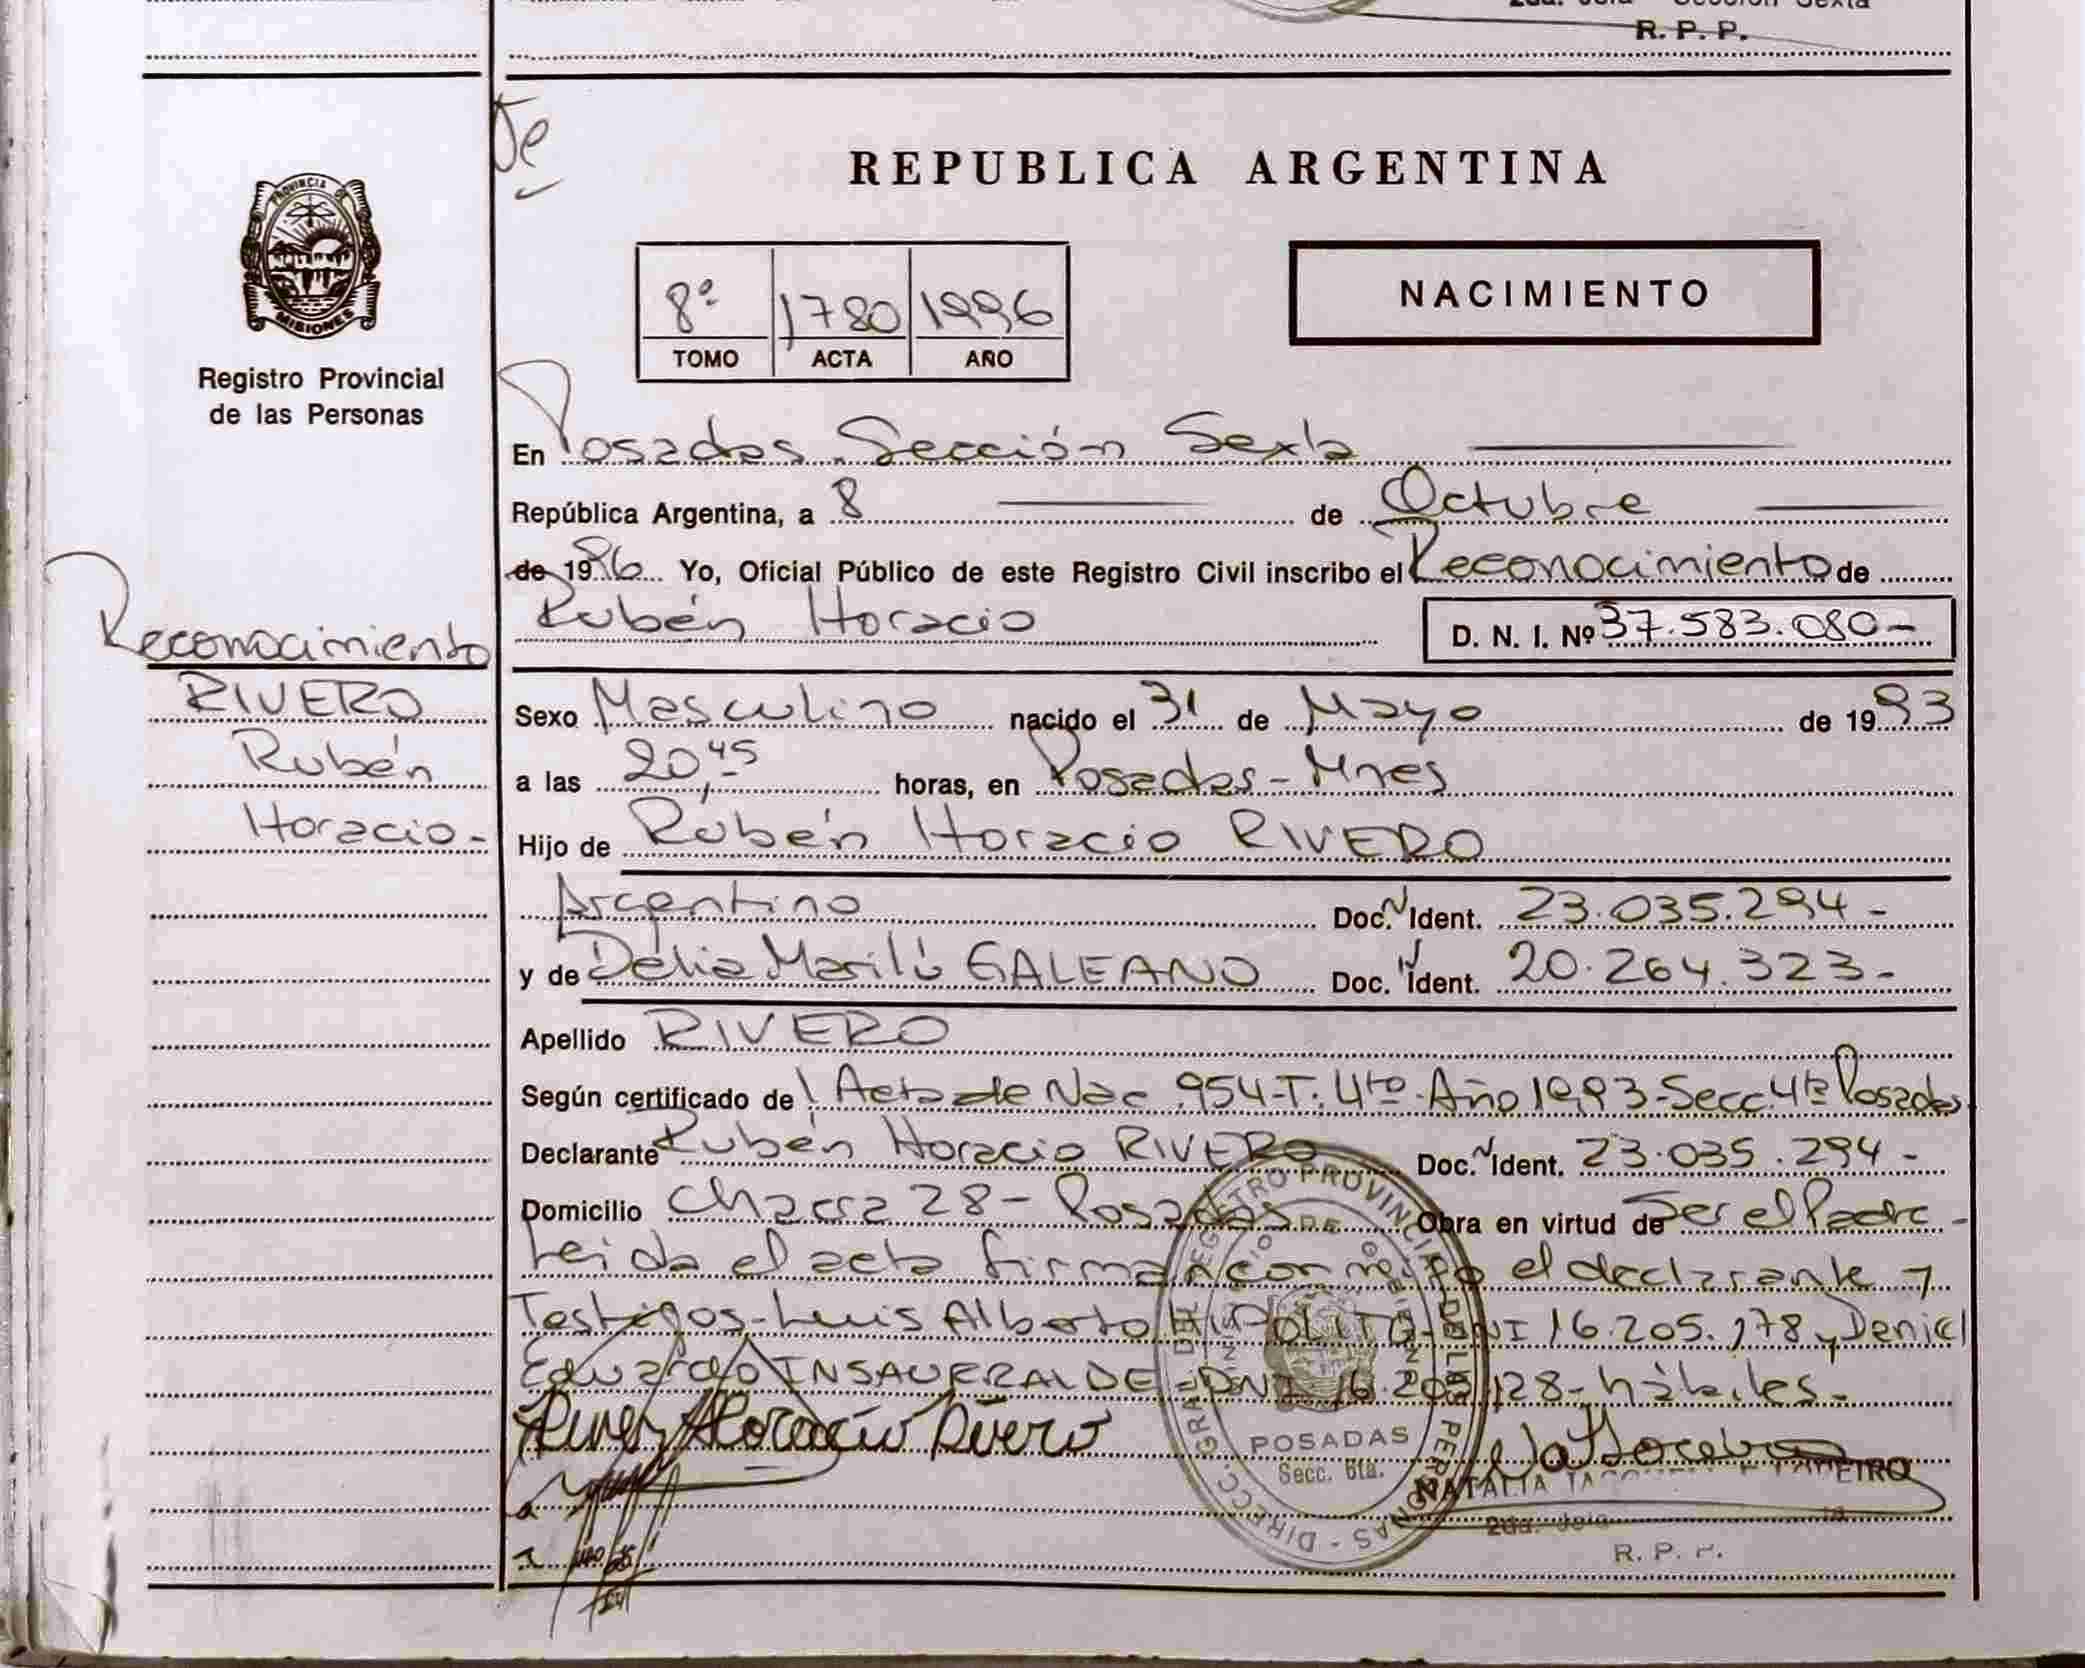 2da. Jefa Sección Sexta
R. P. P.
REPUBLICA ARGENTINA
PROVINCIA DE
MISIONES
Registro Provincial
de las Personas
8º 1780 1996
TOMO ACTA AÑO
NACIMIENTO
En Posadas Sección Sexta
República Argentina, a 8 de Octubre
de 1996 Yo, Oficial Público de este Registro Civil inscribo el Reconocimiento de
Rubén Horacio D. N. I. Nº 37.583.080-
Reconocimiento
RIVERO
Rubén
Horacio-
Sexo Masculino nacido el 31 de Mayo de 1993
a las 20,45 horas, en Posadas-Mnes
Hijo de Rubén Horacio RIVERO
Argentino Doc. Ident. 23.035.294-
y de Delia Marilú GALEANO Doc. Ident. 20.264.323-
Apellido RIVERO
Según certificado de Acta de Nac 954-T. 4to-Año 1993-Secc. 4ta Posadas
Declarante Rubén Horacio RIVERO Doc. Ident. 23.035.294-
Domicilio Chacra 28- Posadas Obra en virtud de Ser el Padre-
Leida el acta firman conmigo el declarante y
Testigos-Luis Alberto HIPOLITO-DNI 16.205.178 y Daniel
Eduardo INSAURRALDE-DNI 16.205.128-hábiles-
Horacio Rivero
POSADAS
Secc. 6ta.
NATALIA
2da. Jefa
R. P. P.